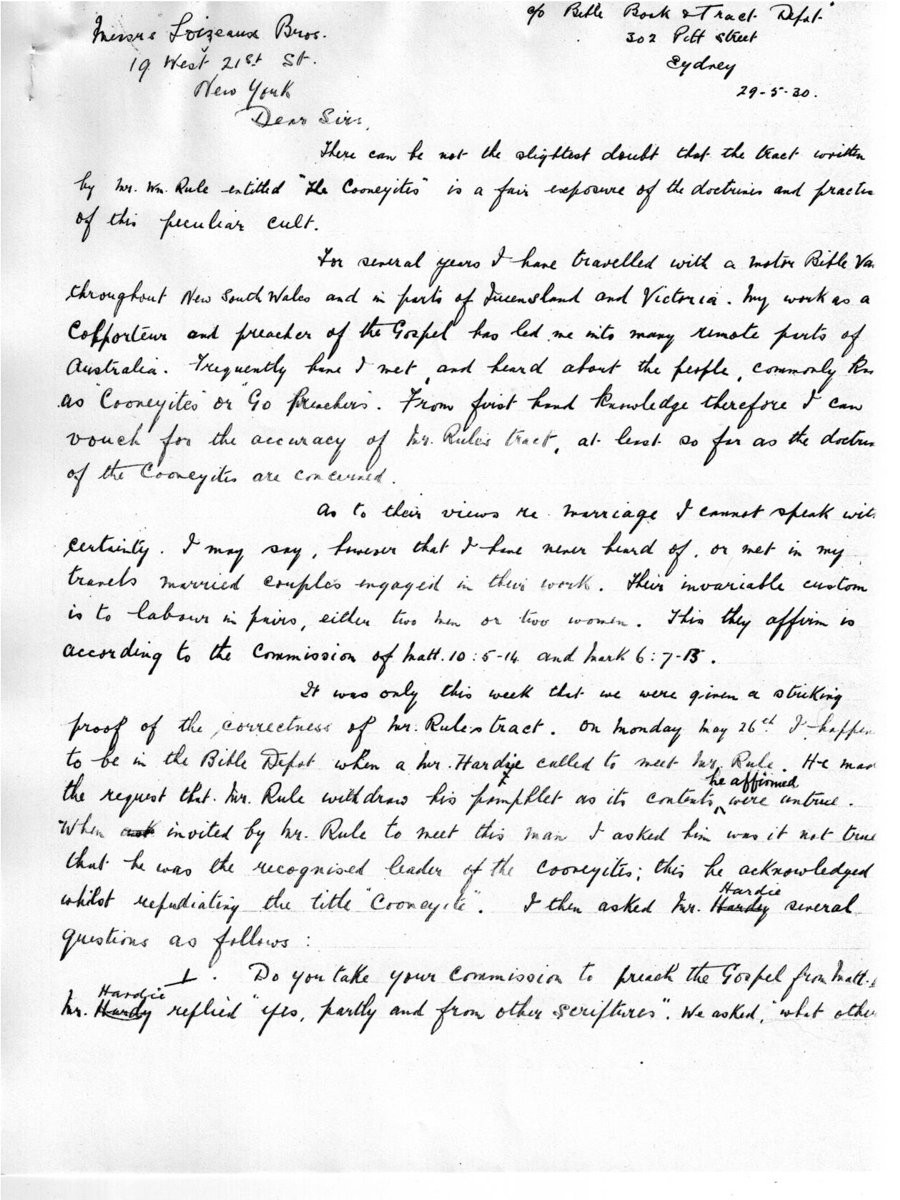 Messrs Loizeaux Bros.
19 West 21st St.
New York
c/o Bible Book & Tract Depot
302 Pitt Street
Sydney
29-5-30.
Dear Sirs,
There can be not the slightest doubt that the tract written
by Mr. Wm. Rule entitled "The Cooneyites" is a fair exposure of the doctrines and practic
of this peculiar cult.
For several years I have travelled with a motor Bible Va
throughout New South Wales and in parts of Queensland and Victoria. My work as a
Colporteur and preacher of the Gospel has led me into many remote parts of
Australia. Frequently have I met, and heard about the people, commonly kn
as "Cooneyites" or "Go Preachers". From first hand knowledge therefore I can
vouch for the accuracy of Mr. Rule's tract, at least so far as the doctrin
of the Cooneyites are concerned.
As to their views re marriage I cannot speak wit
certainty. I may say, however that I have never heard of, or met in my
travels married couples engaged in their work. Their invariable custom
is to labour in pairs, either two men or two women. This they affirm is
according to the Commission of Matt. 10:5-14 and Mark 6:7-13.
It was only this week that we were given a striking
proof of the correctness of Mr. Rule's tract. On Monday May 26th I happen
to be in the Bible Depot when a Mr. Hardie called to meet Mr. Rule. He mad
the request that Mr. Rule withdraw his pamphlet as its contents he affirmed were untrue.
When ask invited by Mr. Rule to meet this man I asked him was it not true
that he was the recognised leader of the Cooneyites; this he acknowledged
whilst repudiating the title "Cooneyite". I then asked Mr. Hardy Hardie several
questions as follows:
1. Do you take your Commission to preach the Gospel from Matt.
Mr. Hardy Hardie replied "yes, partly and from other scriptures". We asked, "what othe